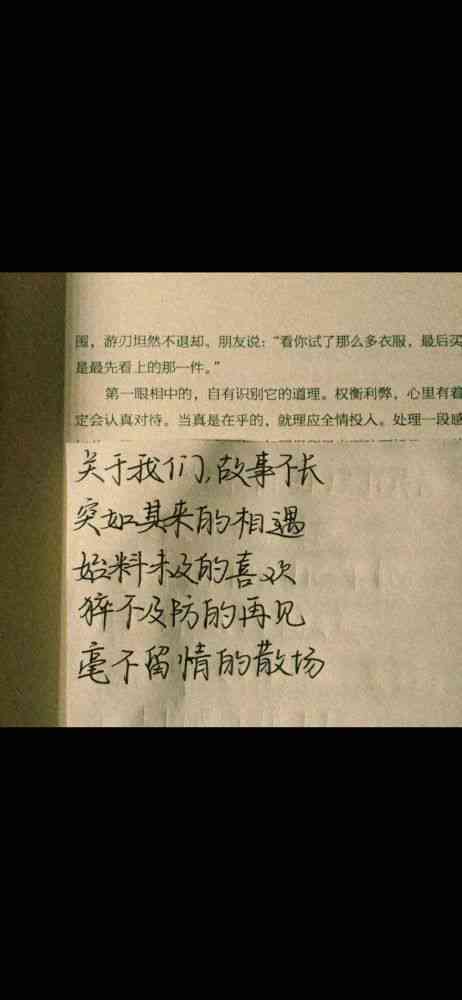 圈，游刃坦然不退却。朋友说：“看你试了那么多衣服，最后买
是最先看上的那一件。”
第一眼相中的，自有识别它的道理。权衡利弊，心里有着
定会认真对待。当真是在乎的，就理应全情投入。处理一段感
关于我们,故事不长
突如其来的相遇
始料未及的喜欢
猝不及防的再见
毫不留情的散场